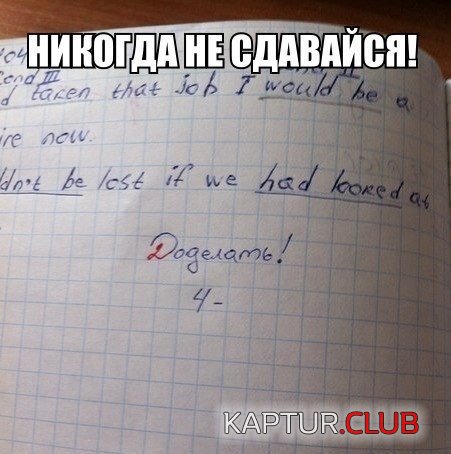 НИКОГДА НЕ СДАВАЙСЯ!
Cond III
taken that job I would be a
now.
be lost if we had looked at
Доделать!
4-
KAPTUR.CLUB